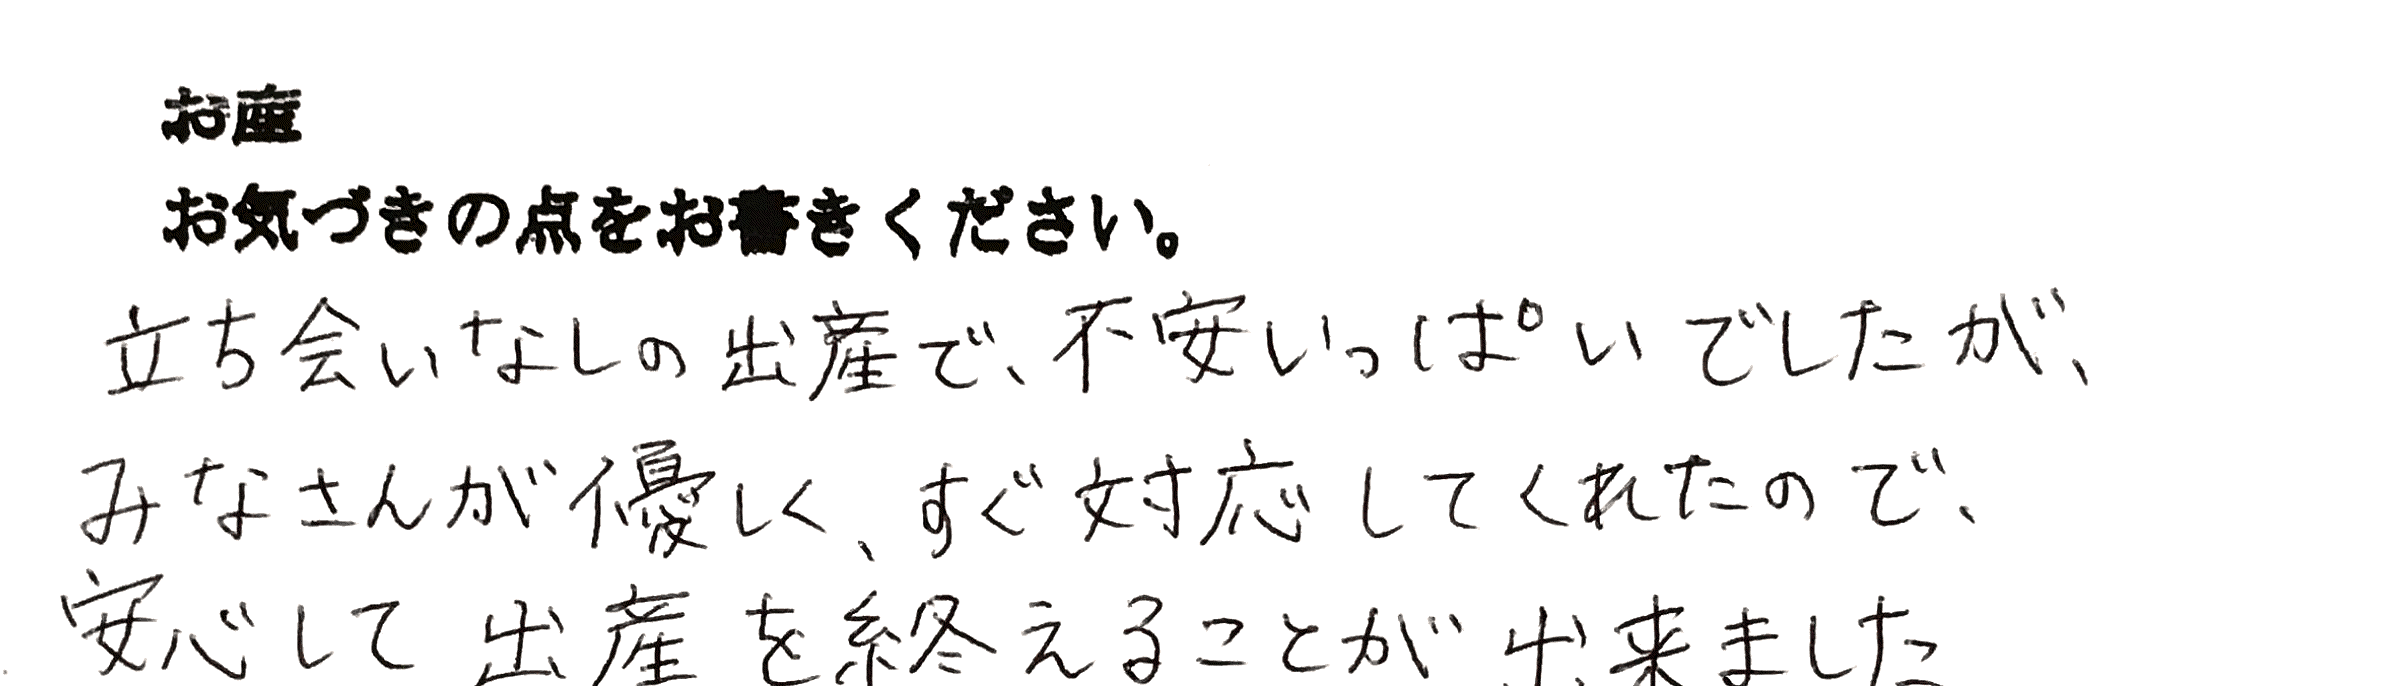 お産
お気づきの点をお書きください。
立ち会いなしの出産で、不安いっぱいでしたが、
みなさんが優しく、すぐ対応してくれたので、
安心して出産を終えることが出来ました